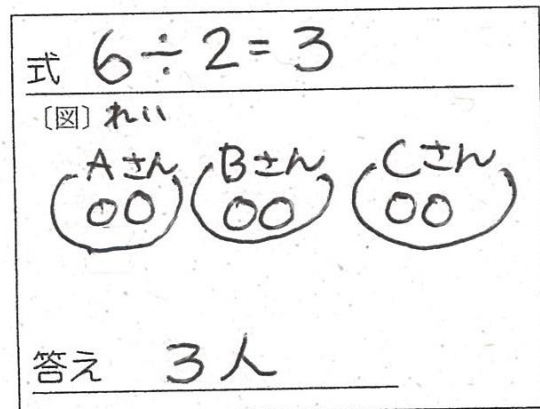 式 6÷2=3
〔図〕れい
Aさん Bさん Cさん
答え 3人